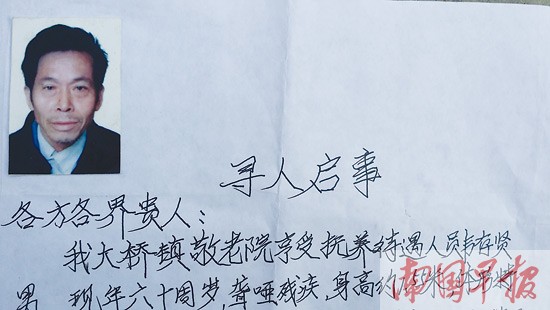 寻人启事
各方各界贵人：
我大桥镇敬老院享受抚养待遇人员韦存贤
男 现年六十周岁，聋哑残疾，身高约
南国早报